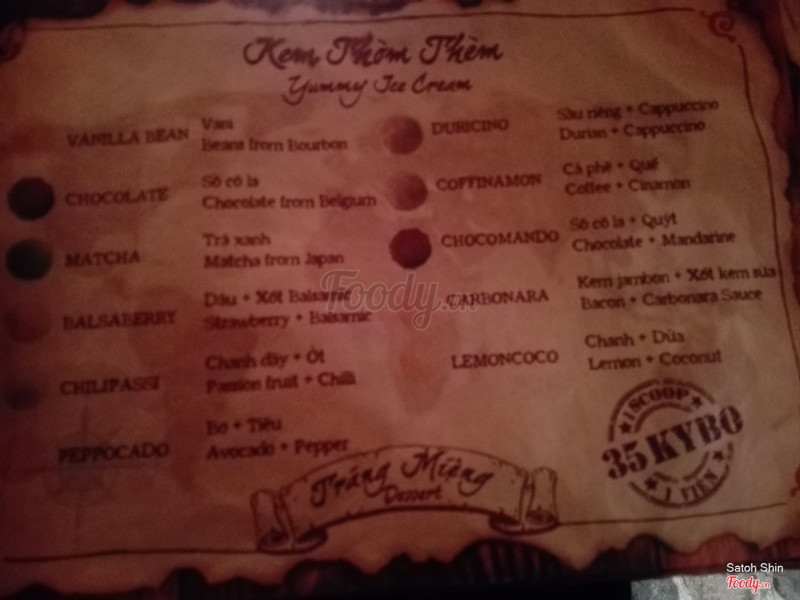 Kem Thòm Thèm
Yummy Ice Cream
VANILLA BEAN
Vani
Beans from Bourbon
CHOCOLATE
Sô cô la
Chocolate from Belgium
MATCHA
Trà xanh
Matcha from Japan
BALSABERRY
Dâu + Xốt Balsamic
Strawberry + Balsamic
CHILIPASSI
Chanh dây + Ớt
Passion fruit + Chilli
PEPPOCADO
Bơ + Tiêu
Avocado + Pepper
DURICINO
Sầu riêng + Cappuccino
Durian + Cappuccino
COFFINAMON
Cà phê + Quế
Coffee + Cinamon
CHOCOMANDO
Sô cô la + Quýt
Chocolate + Mandarine
CARBONARA
Kem jambon + Xốt kem sữa
Bacon + Carbonara Sauce
LEMONCOCO
Chanh + Dừa
Lemon + Coconut
1 SCOOP
35 KYBO
1 VIÊN
Tráng Miệng
Dessert
Foody.vn
Satoh Shin
Foody.vn